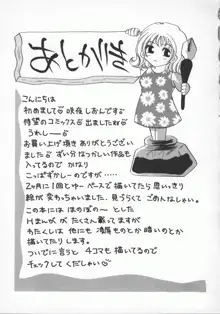 あとがき
こんにちは
初めまして♡咲夜 しおんです♡
待望のコミックス出ましたね♡
うれしー♡
お買い上げ頂き ありがとうござい
ました♡ ずい分なつかしい作品も
入ってるので かなり
こっぱずかしーのですが
2ヶ月に1回とゆーペースで描いてたら思いっきり
絵が変わっちゃいました。見づらくて ごめんなしゃい。
この本には ほのぼの〜 とした
Hまんが がたくさん載ってますが
もたくしは 他にも 濃厚ものとか暗いのとか
描いてたりします。
ついでに言うと 4コマも描いてるので
チェックしてくだしゃい♡